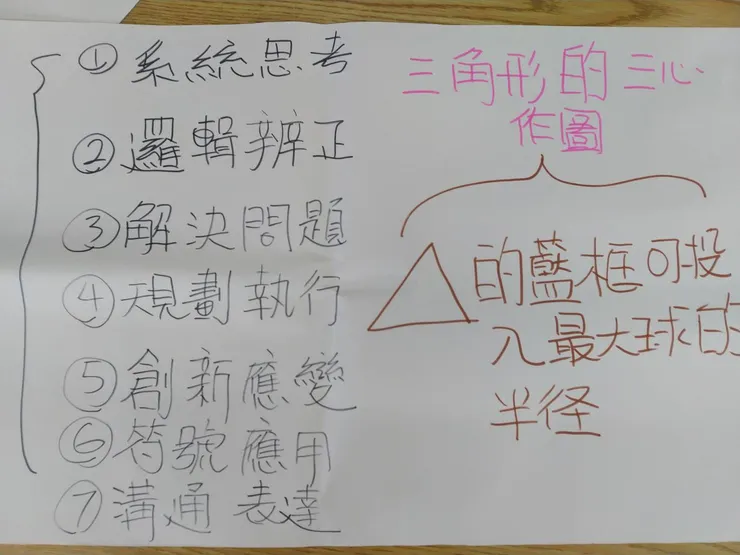 ① 系統思考
② 邏輯辨正
③ 解決問題
④ 規劃執行
⑤ 創新應變
⑥ 符號應用
⑦ 溝通表達
三角形的三心
作圖
的藍框可投
入最大球的
半径